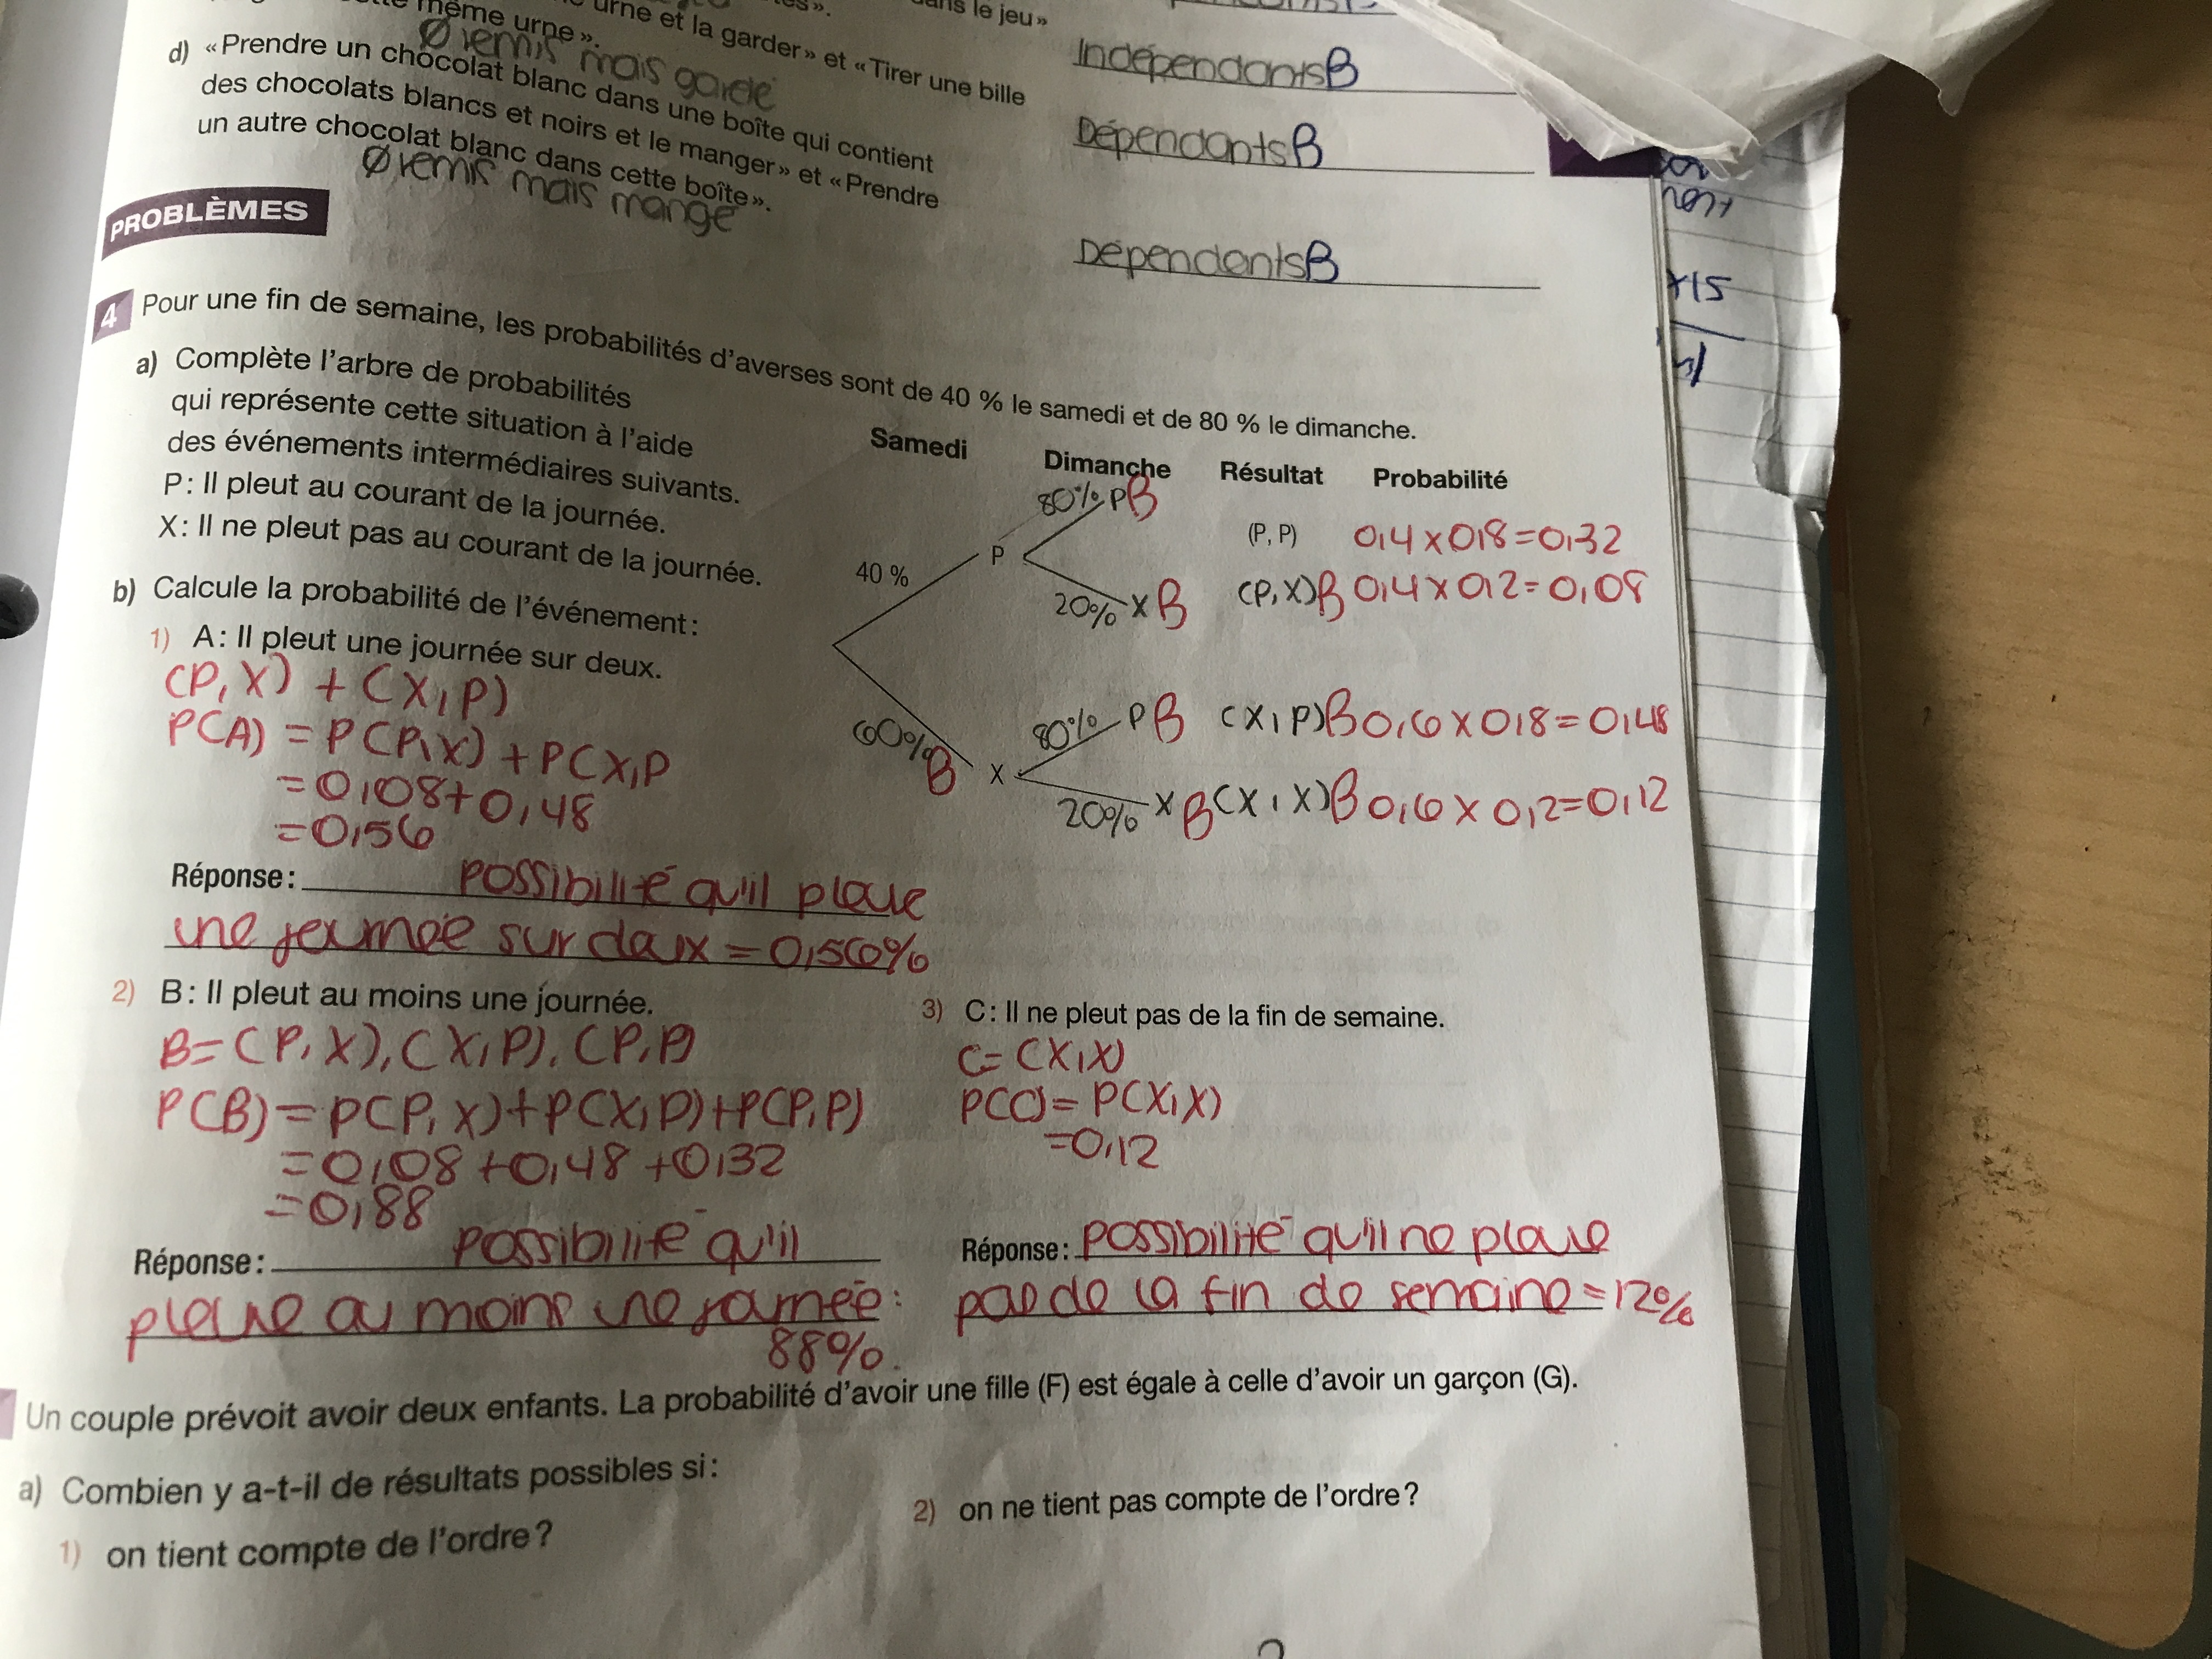 dans le jeu»
même urne».
urne et la garder» et «Tirer une bille
IndépendantsB
Ø remis mais gardé
DépendantsB
d) «Prendre un chocolat blanc dans une boîte qui contient
des chocolats blancs et noirs et le manger» et «Prendre
un autre chocolat blanc dans cette boîte».
Ø remis mais mangé
DépendantsB
PROBLÈMES
4 Pour une fin de semaine, les probabilités d'averses sont de 40 % le samedi et de 80 % le dimanche.
a) Complète l'arbre de probabilités
qui représente cette situation à l'aide
des événements intermédiaires suivants.
P: Il pleut au courant de la journée.
X: Il ne pleut pas au courant de la journée.
Samedi Dimanche Résultat Probabilité
80% P B (P, P) 0,4 x 0,8 = 0,32
40 % P
20% X B (P, X) B 0,4 x 0,2 = 0,08
80% P B (X, P) B 0,6 x 0,8 = 0,48
60% B X
20% X B (X, X) B 0,6 x 0,2 = 0,12
b) Calcule la probabilité de l'événement:
1) A: Il pleut une journée sur deux.
(P, X) + (X, P)
P(A) = P(P, X) + P(X, P
= 0,08 + 0,48
= 0,56
Réponse: possibilité qu'il pleuve
une journée sur deux = 0,56%
2) B: Il pleut au moins une journée.
B = (P, X), (X, P), (P, P)
P(B) = P(P, X) + P(X, P) + P(P, P)
= 0,08 + 0,48 + 0,32
= 0,88
Réponse: possibilité qu'il
pleuve au moins une journée:
88%.
3) C: Il ne pleut pas de la fin de semaine.
C = (X, X)
P(C) = P(X, X)
= 0,12
Réponse: possibilité qu'il ne pleuve
pas de la fin de semaine = 12%
Un couple prévoit avoir deux enfants. La probabilité d'avoir une fille (F) est égale à celle d'avoir un garçon (G).
a) Combien y a-t-il de résultats possibles si:
1) on tient compte de l'ordre?
2) on ne tient pas compte de l'ordre?